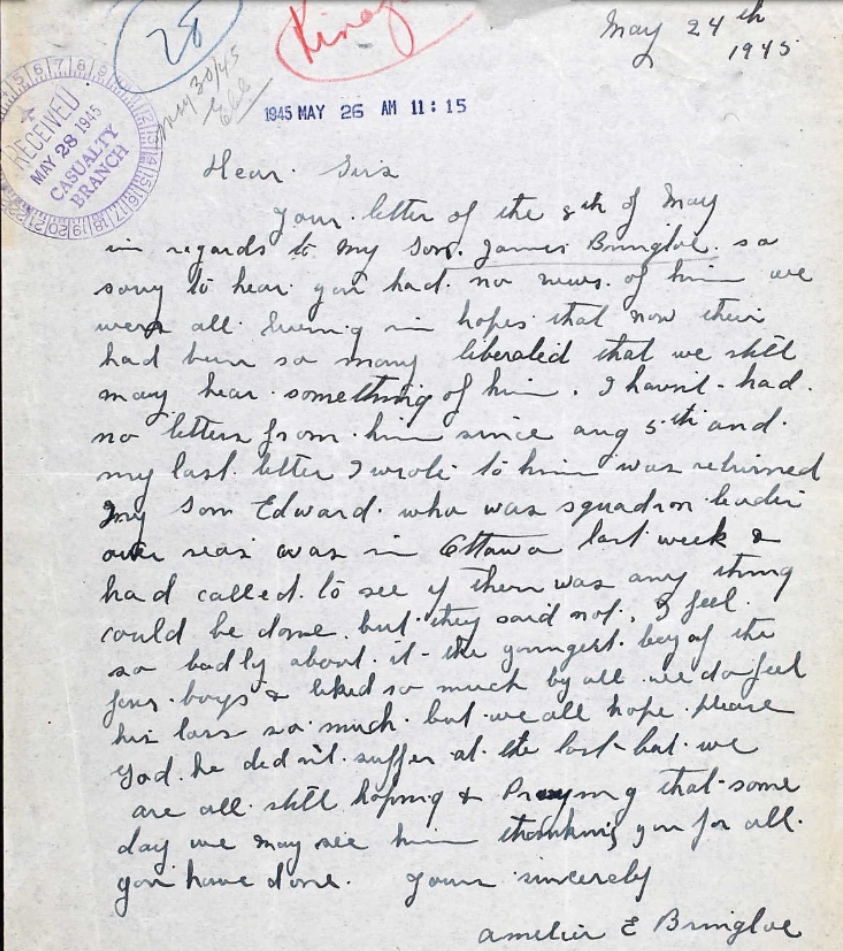 28
King
May 24th
1945
May 30/45
RECEIVED
MAY 28 1945
CASUALTY
BRANCH
1945 MAY 26 AM 11:15
Dear Sirs
Your letter of the 8th of May
in regards to my Son. James Bringloe. so
sorry to hear you had no news of him we
were all living in hopes that now their
had been so many liberated that we still
may hear something of him. I havn't had
no letters from him since aug 5th and
my last letter I wrote to him was returned
My Son Edward who was squadron leader
over seas was in Ottawa last week &
had called to see if there was any thing
could be done but they said not, I feel
so badly about it the youngest boy of the
four boys & liked so much by all we do feel
his loss so much but we all hope please
God he didn't suffer at the last but we
are all still hoping & Praying that some
day we may see him thanking you for all
you have done. Yours sincerely
Amelia E Bringloe